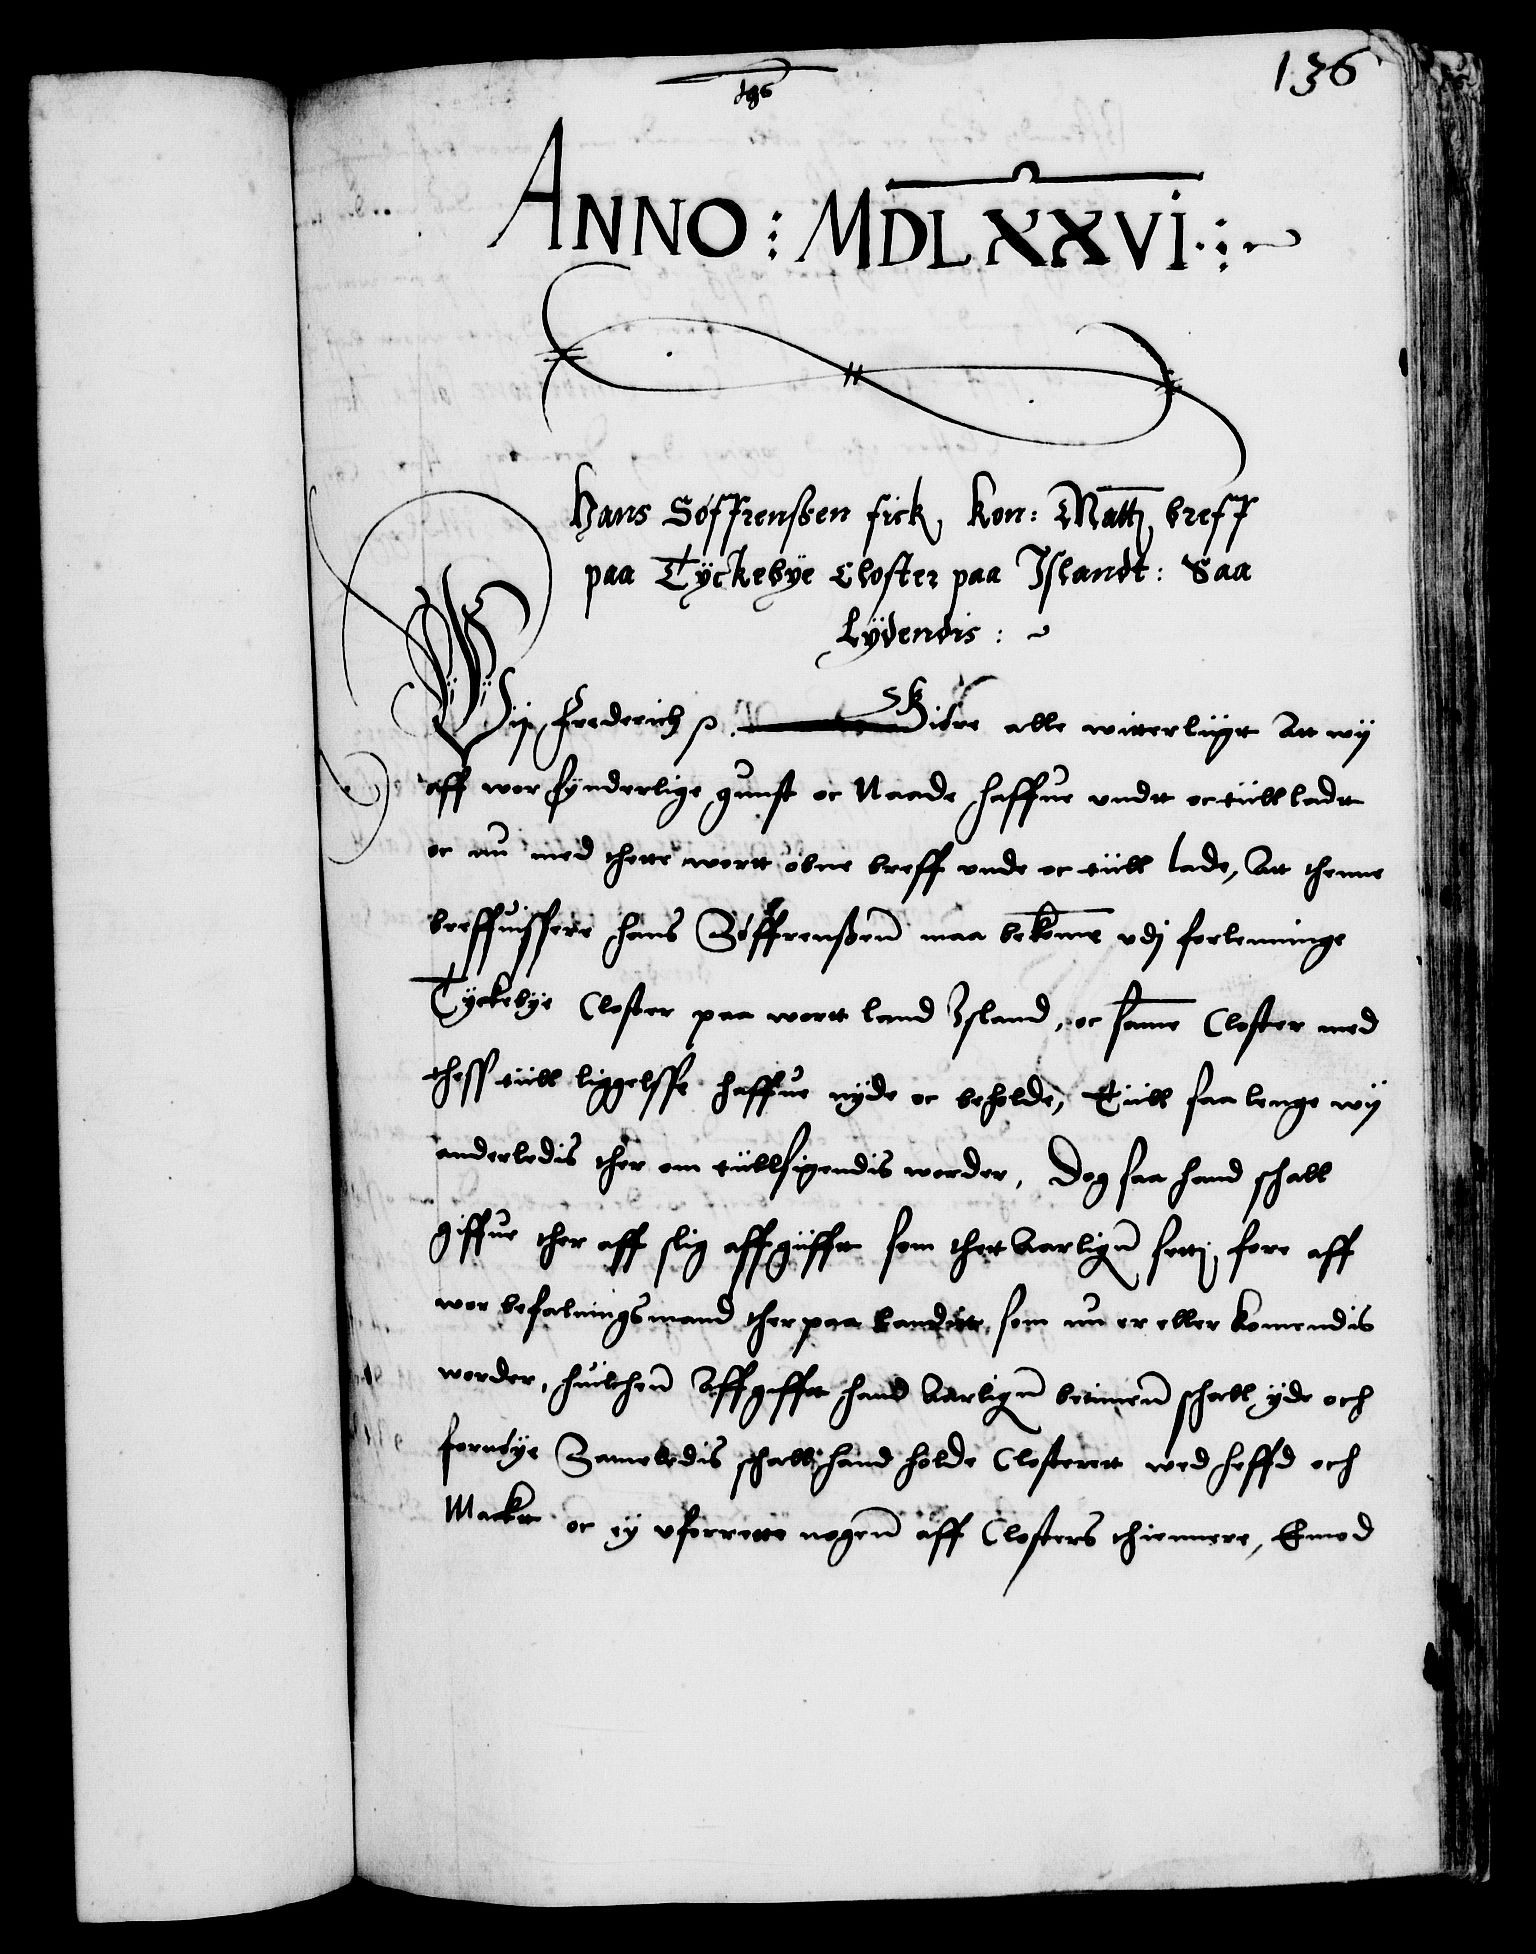 136
ANNO : MDLXXVI
Hans Söffrenßen fick, Kon: Matt: breff
paa Tÿckebÿe Closter paa Jslandt: Saa
Lÿdendis : ~
Wij Frederich p. Skiöre alle witterliigtt Att wij
aff wor sÿnderlige gunst oc Naade haffue vndtt oc tiill ladtt
oc nu med thette wortt obne breff vnde oc tiill lade, Att thenne
breffuissere Hans Söffrenßen maa bekome vdj forlenninge
Tÿckebÿe Closter paa wortt land Jsland, oc same Closter med
thess tiill liggelsse haffue nÿde oc beholde, Tiill saa lenge wij
anderledis ther om tiillsigendis worder, Dog saa hand schall
giffue ther aff slig affgiifft som thet Aarlig setti fore aff
wor befalningsmand ther paa Landtt, som nu er eller komendis
worder, huilchen Affgifft hand Aarlig betimen schall ÿde och
fornöÿe Sameledis schall hand holde Closterett wed heffd och
Macktt oc ej vforrette nogen aff Closters thiennere, Emod